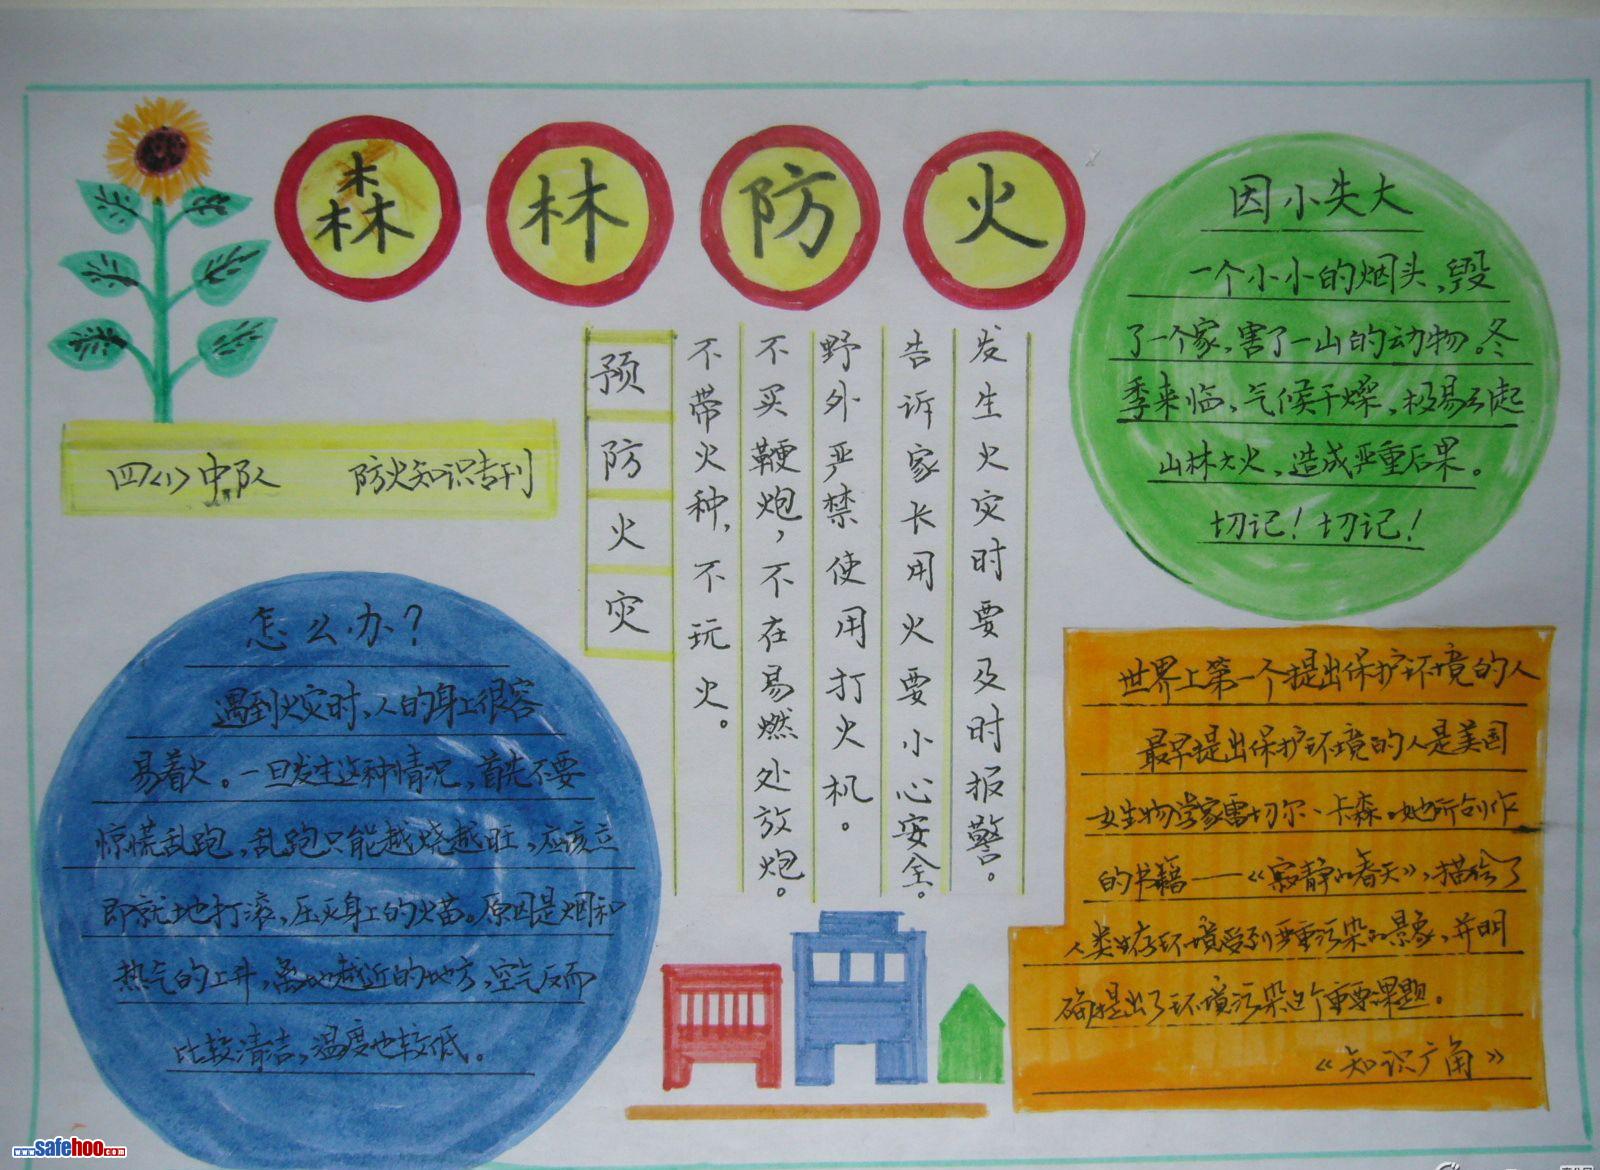 森林防火
四(1)中队 防火知识专刊
预防火灾
不带火种，不玩火。
不买鞭炮，不在易燃处放炮。
野外严禁使用打火机。
告诉家长用火要小心安全。
发生火灾时要及时报警。
因小失大
一个小小的烟头、毁
了一个家，害了一山的动物。冬
季来临、气候干燥、极易引起
山林大火，造成严重后果。
切记！切记！
怎么办？
遇到火灾时、人的身上很容
易着火。一旦发生这种情况，首先不要
惊慌乱跑，乱跑只能越烧越旺，应该立
即就地打滚，压灭身上的火苗。原因是烟和
热气的上升，离地越近的地方，空气反而
比较清洁，温度也较低。
世界上第一个提出保护环境的人
最早提出保护环境的人是美国
女生物学家雷切尔、卡森。她所创作
的书籍——《寂静的春天》，描绘了
人类生存环境受到严重污染的景象，并明
确提出了环境污染这个重要课题。
《知识广角》
www.safehoo.com